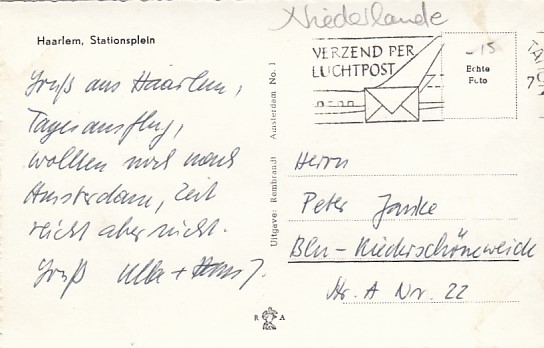 Niederlande
Haarlem, Stationsplein
VERZEND PER
LUCHTPOST
- 15
Echte
Foto
Gruß aus Haarlem,
Tagesausflug,
wollten noch nach
Amsterdam, Zeit
reicht aber nicht.
Gruß Ulla + Hans J.
Uitgave: Rembrandt Amsterdam No. 1
Herrn
Peter Janke
Bln-Niederschöneweide
Str. A Nr. 22
R A